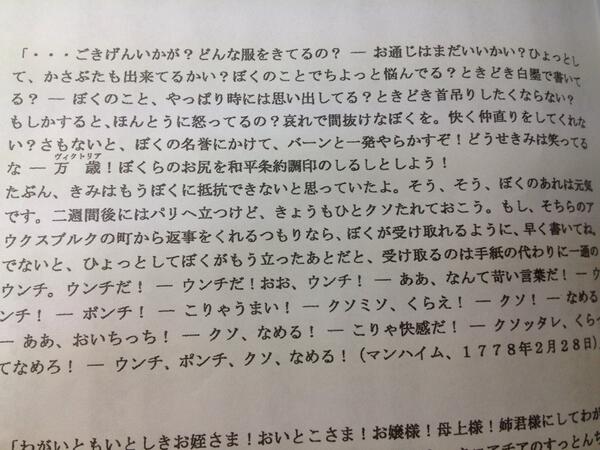 「・・・ごきげんいかが？どんな服をきてるの？ ― お通じはまだいいかい？ひょっとし
て、かさぶたも出来てるかい？ぼくのことでちょっと悩んでる？ときどき白墨で書いて
る？ ― ぼくのこと、やっぱり時には思い出してる？ときどき首吊りしたくならない？
もしかすると、ほんとうに怒ってるの？哀れで間抜けなぼくを。快く仲直りをしてくれな
い？さもないと、ぼくの名誉にかけて、バーンと一発やらかすぞ！どうせきみは笑ってる
ヴィクトリア
な ― 万歳！ぼくらのお尻を和平条約調印のしるしとしよう！
たぶん、きみはもうぼくに抵抗できないと思っていたよ。そう、そう、ぼくのあれは元気
です。二週間後にはパリへ立つけど、きょうもひとクソたれておこう。もし、そちらのア
ウクスブルクの町から返事をくれるつもりなら、ぼくが受け取れるように、早く書いてね。
でないと、ひょっとしてぼくがもう立ったあとだと、受け取るのは手紙の代わりに一通の
ウンチ。ウンチだ！ ― ウンチだ！おお、ウンチ！ ― ああ、なんて甘い言葉だ！ ― ウ
ンチ！ ― ポンチ！ ― こりゃうまい！ ― クソミソ、くらえ！ ― クソ！ ― なめる
― ああ、おいちっち！ ― クソ、なめる！ ― こりゃ快感だ！ ― クソッタレ、くらっ
てなめろ！ ― ウンチ、ポンチ、クソ、なめる！（マンハイム、１７７８年２月２８日）
「わがいともいとしきお姪さま！おいとこさま！お嬢様！母上様！姉君様にしてわが